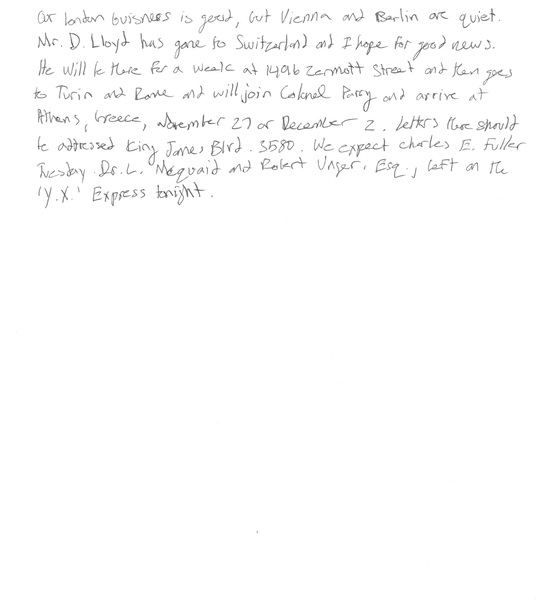 Our London buisness is good, but Vienna and Berlin are quiet.
Mr. D. Lloyd has gone to Switzerland and I hope for good news.
He will be there for a week at 1496 Zermott Street and then goes
to Turin and Rome and will join Colonel Parry and arrive at
Athens, Greece, November 27 or December 2. Letters there should
be addressed King James Blvd. 3580. We expect Charles E. Fuller
Tuesday. Dr. L. McQuaid and Robert Unger, Esq., left on the
'Y.X.' Express tonight.